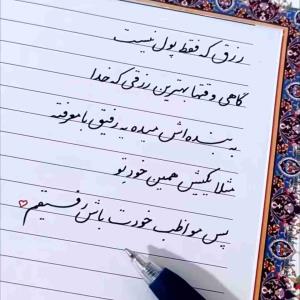 رزق که فقط پول نیست
گاهی وقتها بهترین رزقی که خدا
به بنده اش میده یه رفیق با معرفته
مثلا یکیش همین خود تو
پس مواظب خودت باش رفیقم